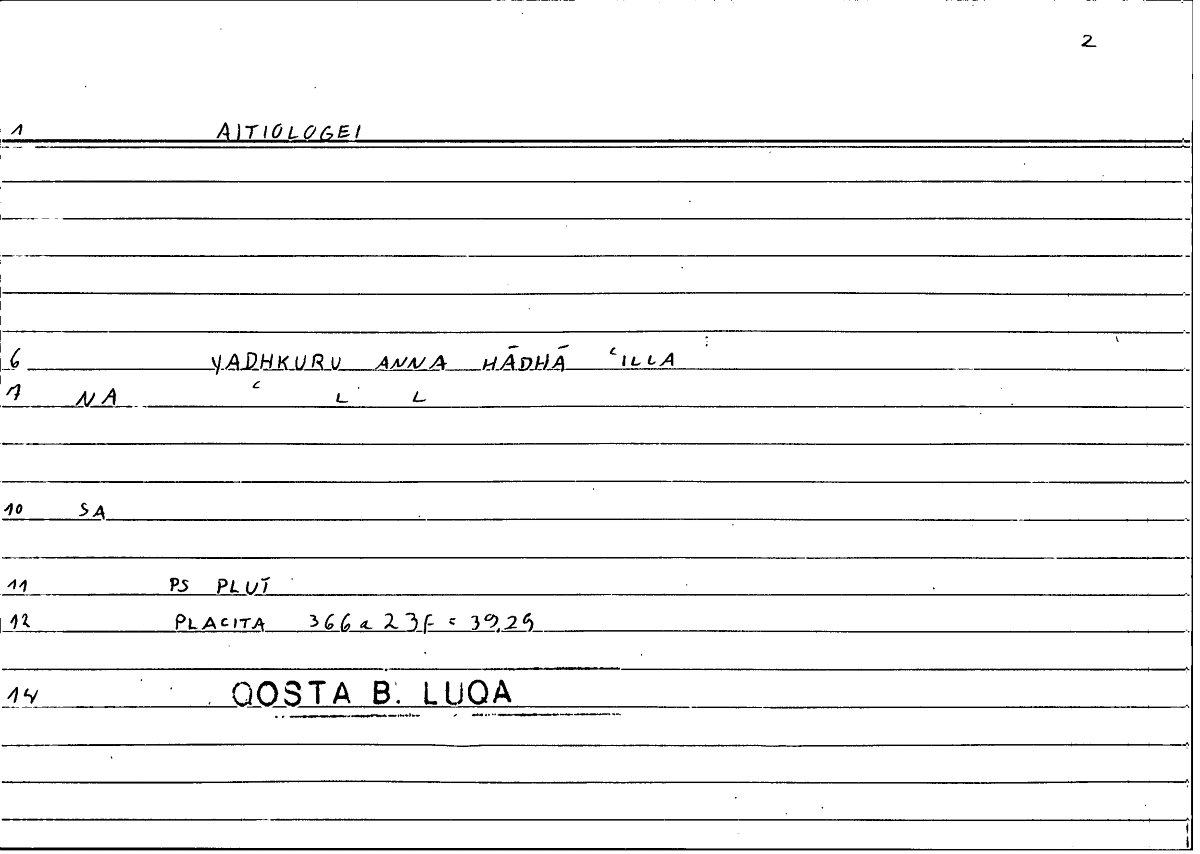 2
1 AITIOLOGEI
6 YADHKURU ANNA HĀDHĀ ʿILLA
7 NA ʿ L L
10 SA
11 PS PLUT
12 PLACITA 366a23f = 39,29
14 QOSTA B. LUQA